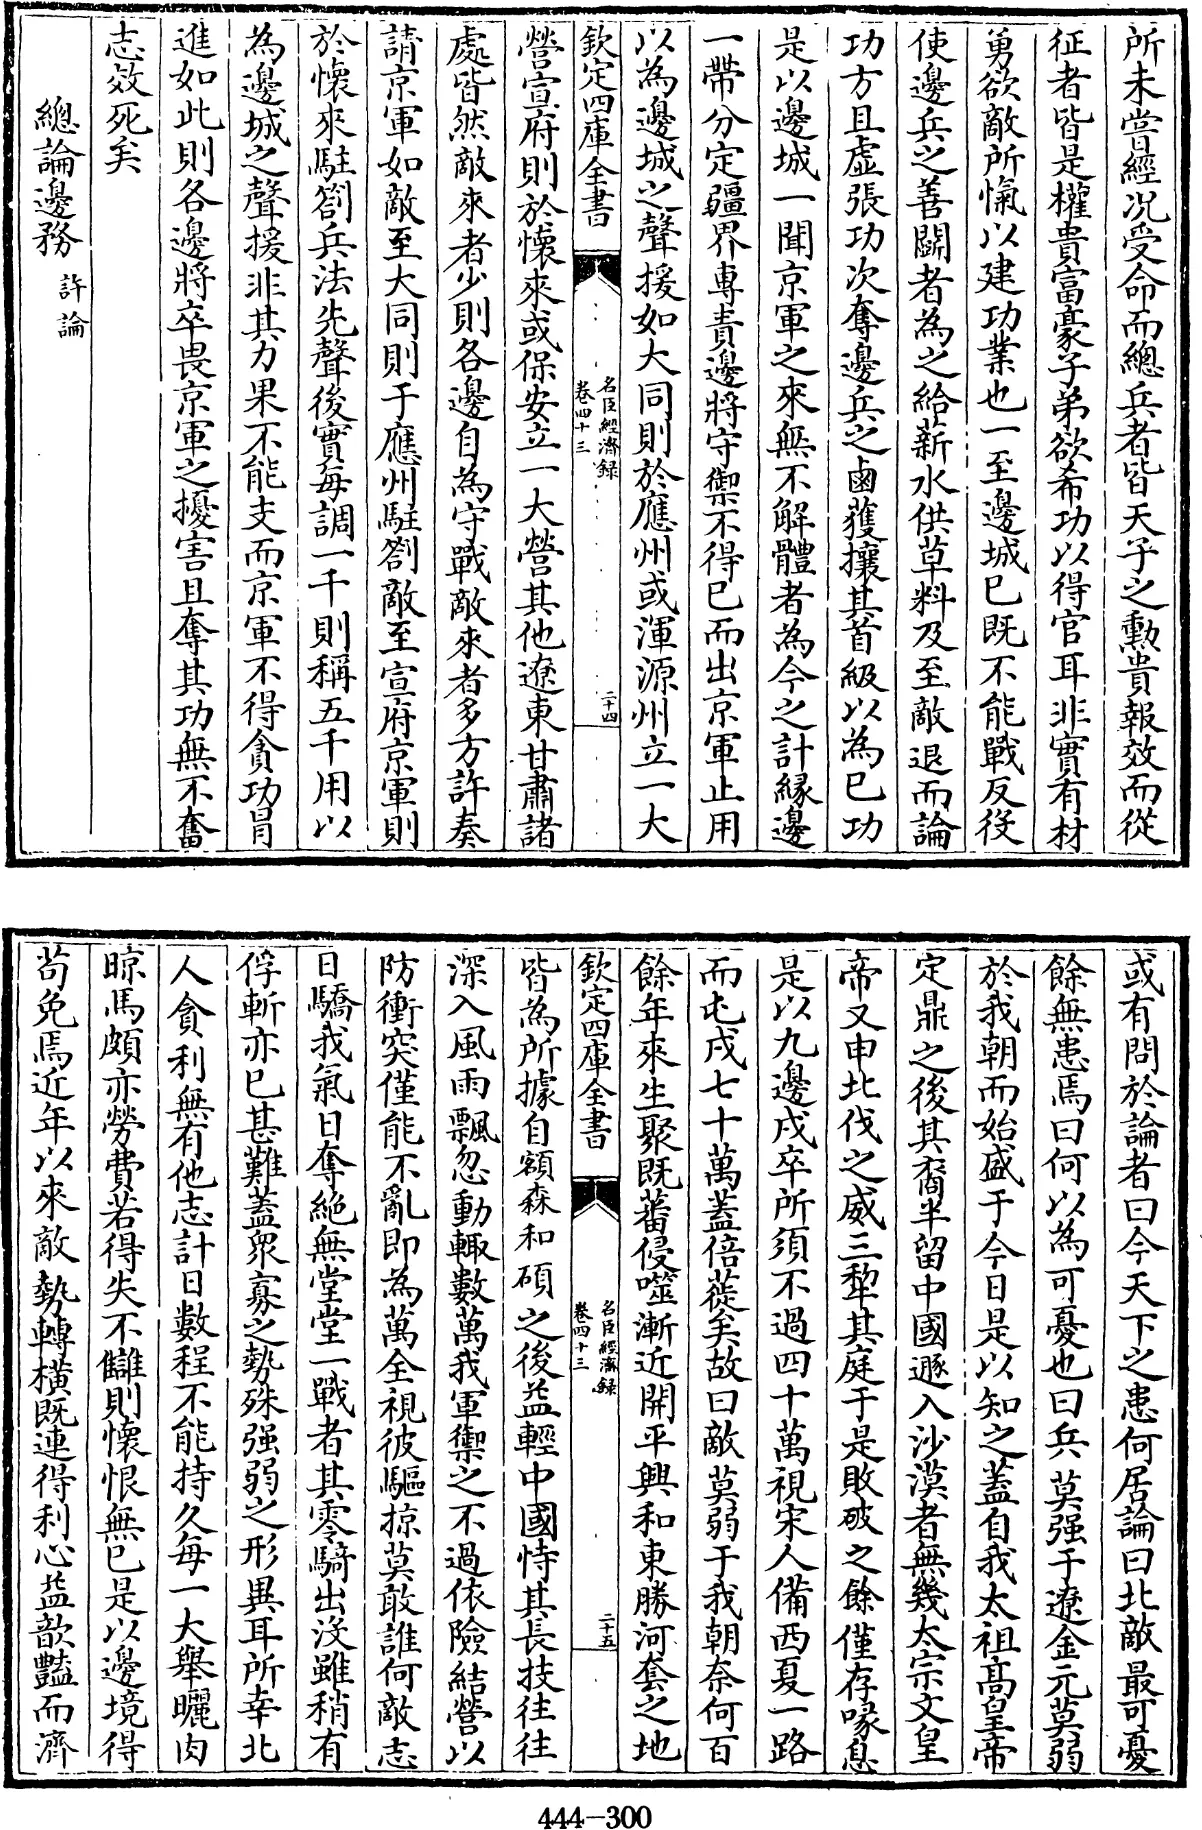 所未嘗經况受命而總兵者皆天子之勲貴報效而從
征者皆是權貴富豪子弟欲希功以得官耳非實有材
勇欲敵所愾以建功業也一至邊城已既不能戰反役
使邊兵之善鬭者為之給薪水供草料及至敵退而論
功方且虛張功次奪邊兵之鹵獲攘其首級以為已功
是以邊城一聞京軍之來無不解體者為今之計緣邊
一帶分定疆界專責邊將守禦不得已而出京軍止用
以為邊城之聲援如大同則於應州或渾源州立一大
欽定四庫全書
名臣經濟録
卷四十三
二十四
營宣府則於懷來或保安立一大營其他遼東甘肅諸
處皆然敵來者少則各邊自為守戰敵來者多方許奏
請京軍如敵至大同則于應州駐劄敵至宣府京軍則
於懷來駐劄兵法先聲後實每調一千則稱五千用以
為邊城之聲援非其力果不能支而京軍不得貪功冒
進如此則各邊將卒畏京軍之擾害且奪其功無不奮
志效死矣
總論邊務 許論
或有問於論者曰今天下之患何居論曰北敵最可憂
餘無患焉曰何以為可憂也曰兵莫强于遼金元莫弱
於我朝而始盛于今日是以知之蓋自我太祖高皇帝
定鼎之後其裔半留中國遯入沙漠者無幾太宗文皇
帝又申北伐之威三犂其庭于是敗破之餘僅存喙息
是以九邊戍卒所須不過四十萬視宋人備西夏一路
而屯戍七十萬蓋倍蓰矣故曰敵莫弱于我朝奈何百
餘年來生聚既蕃侵噬漸近開平興和東勝河套之地
欽定四庫全書
名臣經濟録
卷四十三
二十五
皆為所據自額森和碩之後益輕中國恃其長技往往
深入風雨飄忽動輙數萬我軍禦之不過依險結營以
防衝突僅能不亂即為萬全視彼驅掠莫敢誰何敵志
日驕我氣日奪絶無堂堂一戰者其零騎出没雖稍有
俘斬亦已甚難蓋衆寡之勢殊强弱之形異耳所幸北
人貪利無有他志計日數程不能持久每一大舉曬肉
晾馬頗亦勞費若得失不讎則懷恨無已是以邊境得
茍免焉近年以來敵勢轉横既連得利心益歆豔而濟
444-300